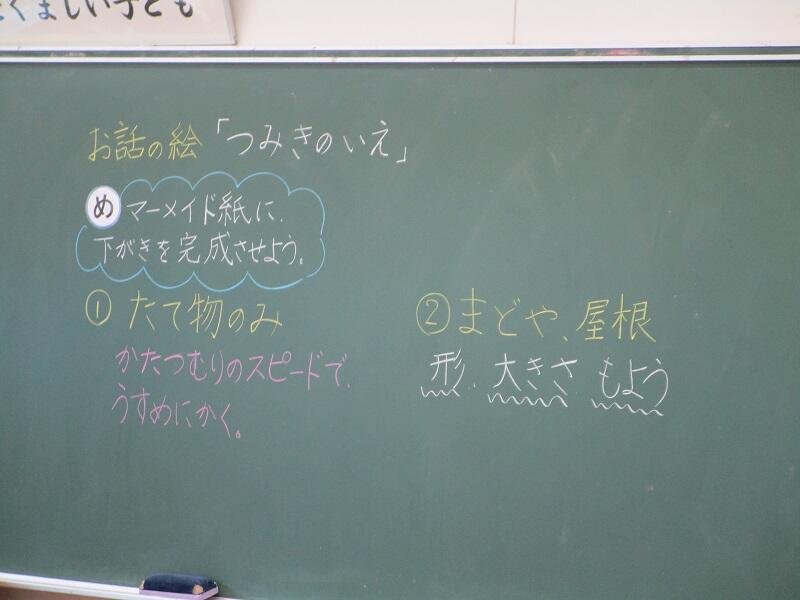 くましい子ども
お話の絵「つみきのいえ」
め マーメイド紙に、
下がきを完成させよう。
① たて物のみ
かたつむりのスピードで、
うすめにかく。
② まどや、屋根
形、大きさ もよう